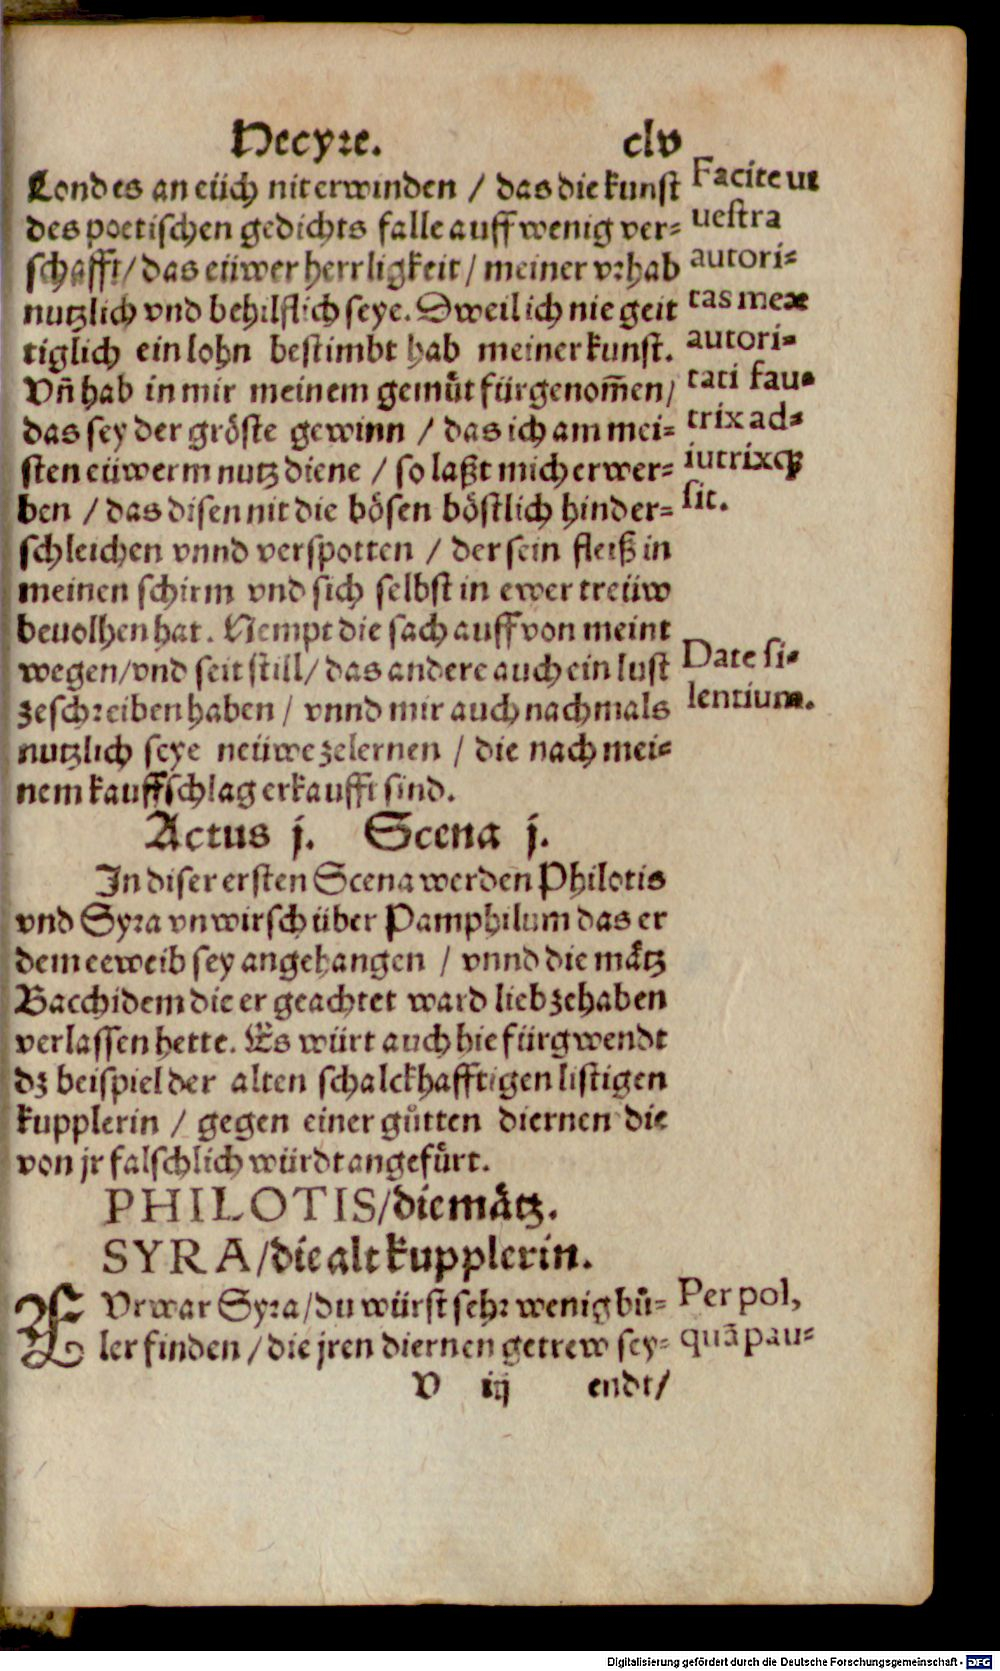 Hecyre. clv
Lond es an eüch nit erwinden / das die kunst
des poetischen gedichts falle auff wenig ver⸗
schafft / das eüwer herrligkeit / meiner vrhab
nutzlich vnd behilflich seye. Dweil ich nie geit
tiglich ein lohn bestimbt hab meiner kunst.
Vñ hab in mir meinem gemuͤt fürgenom̄en /
das sey der gröste gewinn / das ich am mei⸗
sten eüwerm nutz diene / so laßt mich erwer⸗
ben / das disen nit die bösen böstlich hinder⸗
schleichen vnnd verspotten / der sein fleiß in
meinen schirm vnd sich selbst in ewer treüw
beuolhen hat. Nempt die sach auff von meint
wegen / vnd seit still / das andere auch ein lust
zeschreiben haben / vnnd mir auch nachmals
nutzlich seye neüwe zelernen / die nach mei⸗
nem kauffschlag erkaufft sind.
Facite ut
uestra
autori⸗
tas meæ
autori⸗
tati fau⸗
trix ad⸗
iutrixqꝫ
sit.
Date si⸗
lentium.
Actus j. Scena j.
In diser ersten Scena werden Philotis
vnd Syra vnwirsch über Pamphilum das er
dem eeweib sey angehangen / vnnd die maͤtz
Bacchidem die er geachtet ward lieb zehaben
verlassen hette. Es würt auch hie fürgwendt
dz beispiel der alten schalckhafftigen listigen
kupplerin / gegen einer guͤtten diernen die
von jr falschlich würdt angefuͤrt.
PHILOTIS / die maͤtz.
SYRA / die alt kupplerin.
FVrwar Syra / du würst sehr wenig buͤ⸗
ler finden / die jren diernen getrew sey⸗
Per pol,
quā pau⸗
V iij endt /
Digitalisierung gefördert durch die Deutsche Forschungsgemeinschaft - DFG